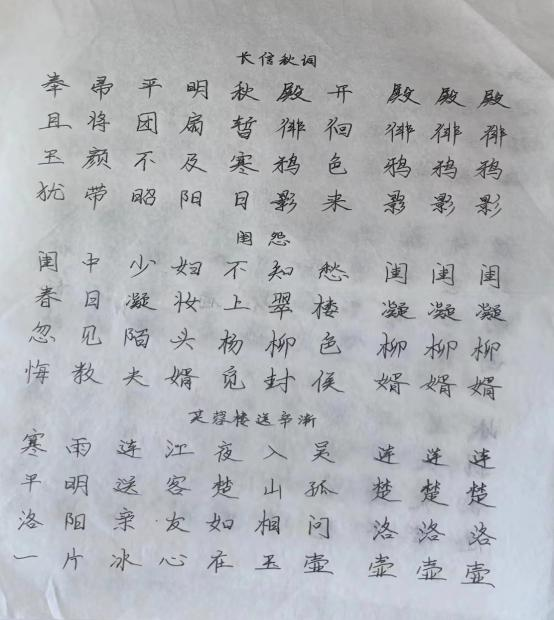 长信秋词
奉帚平明秋殿开 殿殿殿
且将团扇暂徘徊 徘徘徘
玉颜不及寒鸦色 鸦鸦鸦
犹带昭阳日影来 影影影
闺怨
闺中少妇不知愁 闺闺闺
春日凝妆上翠楼 凝凝凝
忽见陌头杨柳色 柳柳柳
悔教夫婿觅封侯 婿婿婿
芙蓉楼送辛渐
寒雨连江夜入吴 连连连
平明送客楚山孤 楚楚楚
洛阳亲友如相问 洛洛洛
一片冰心在玉壶 壶壶壶